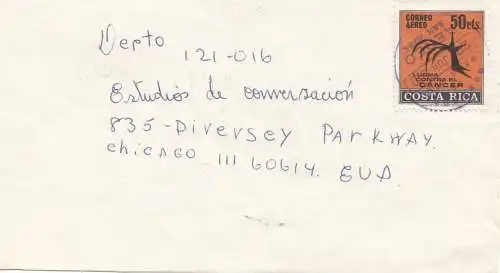 CORREO 50cts.
AEREO
LUCHA
CONTRA EL
CANCER
COSTA RICA
Depto 121-016
Estudios de conversación
835-Diversey Parkway.
chicago III 60614. EUA